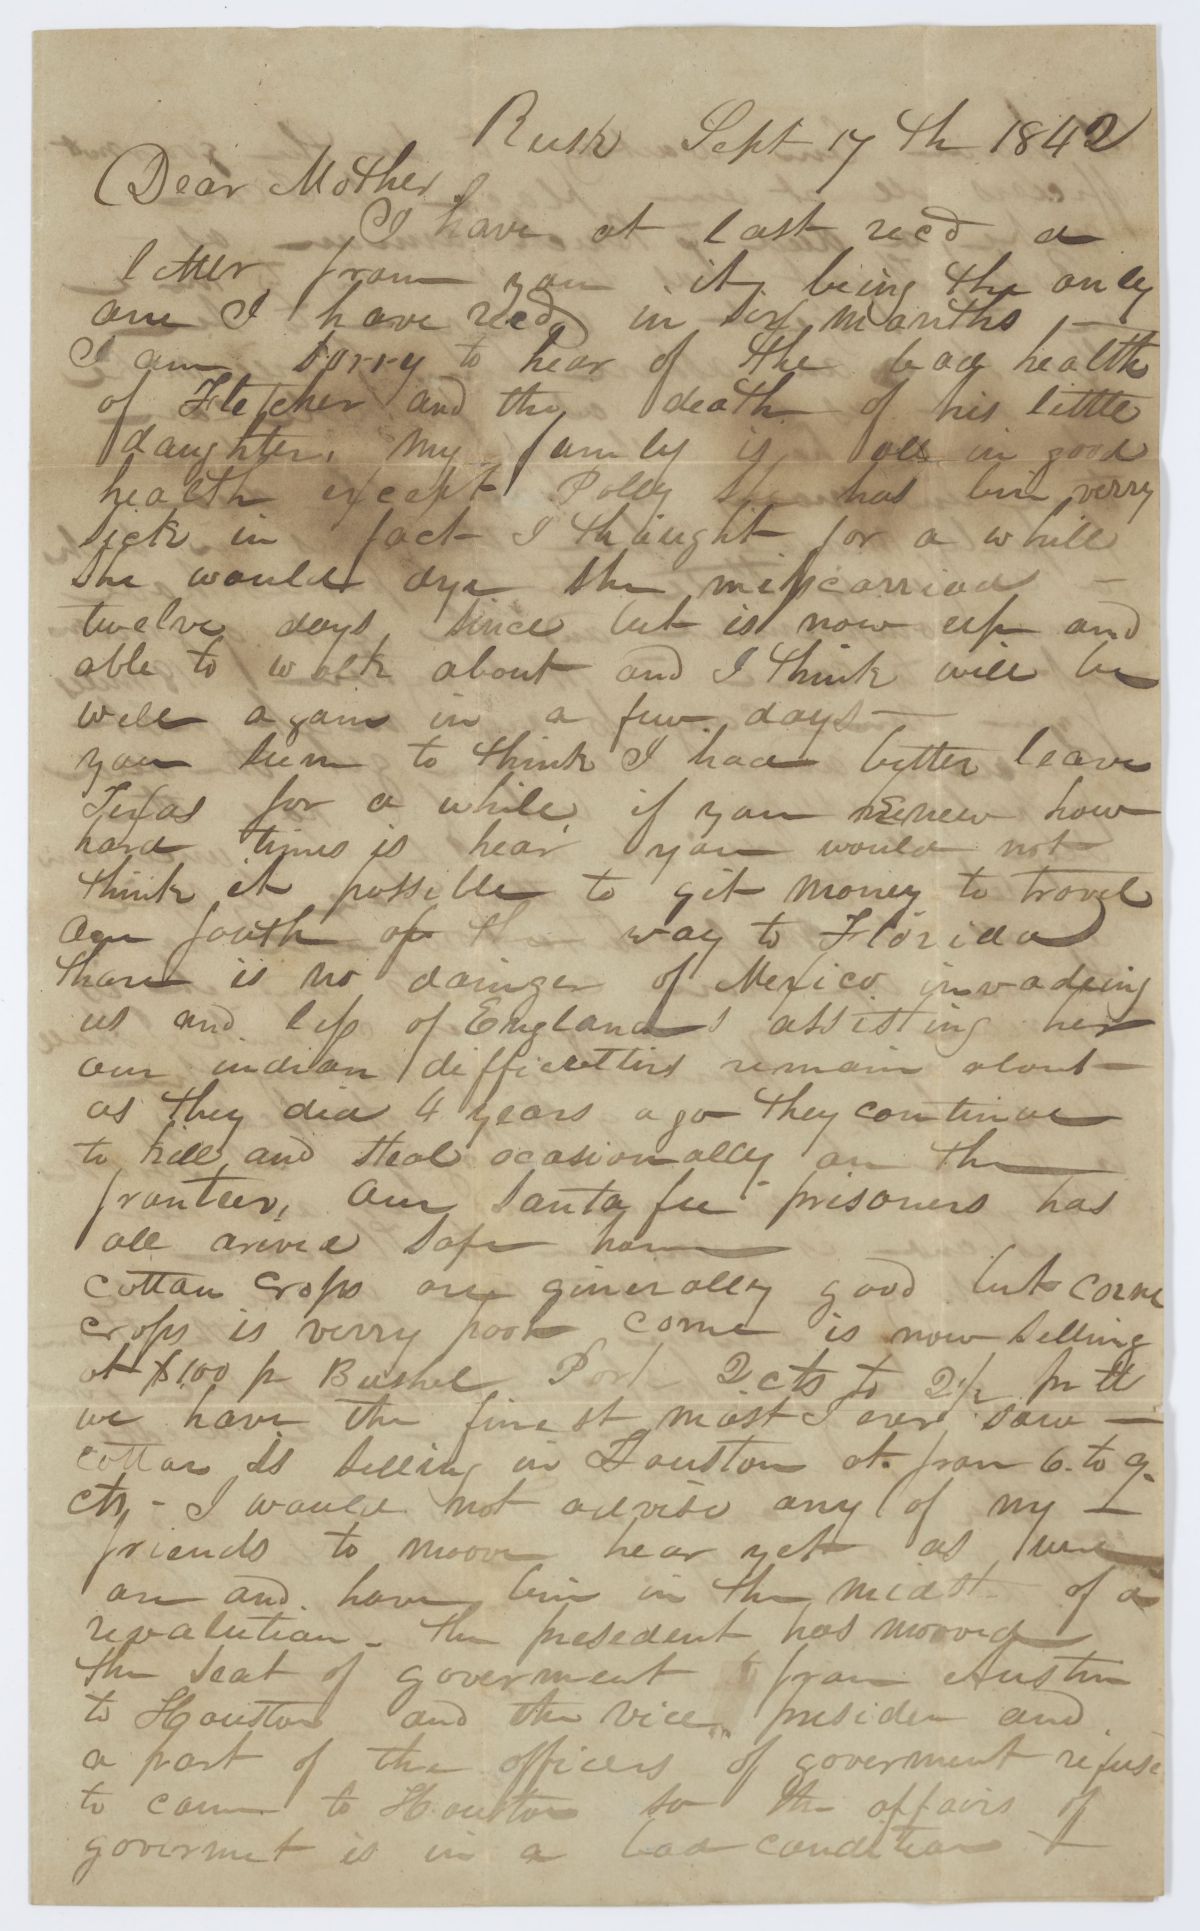 Rusk Sept 17th 1842
Dear Mother
I have at last recd a
letter from you it being the only
one I have recd in six months —
I am sorry to hear of the bad health
of Fletcher and the death of his little
daughter, my family is all in good
health except Polly she has bin verry
sick in fact I thaught for a while
she would dye she misscarried —
twelve days since but is now up and
able to walk about and I think will be
well again in a few days —
you seem to think I had better leave
Texas for a while if you knew how
hard times is hear you would not
think it possible to git money to travel
one fouth of the way to Florida
thare is no dainger of Mexico invadeing
us and less of Englands assisting her
our indian difficultys remain about —
as they did 4 years ago they continue
to kill and steal ocasionally on the
fronteer, Our Santa fee prisoners has
all arived safe home
cotton crops are ginerally good but corne
crops is verry poor corne is now selling
at $1.00 pr Bushel Pork 2 cts to 2 1/2 pr lb
we have the finest mast I ever saw —
cotton is selling in Houston at from 6 to 9
cts - I would not advise any of my —
friends to moove hear yet as wee
are and have bin in the midst of a
revalution - the presedent has mooved
the seat of goverment from Austin
to Houston and the vice presiden and
a part of the officers of goverment refuse
to come to Houston so the affairs of
goverment is in a bad condition &